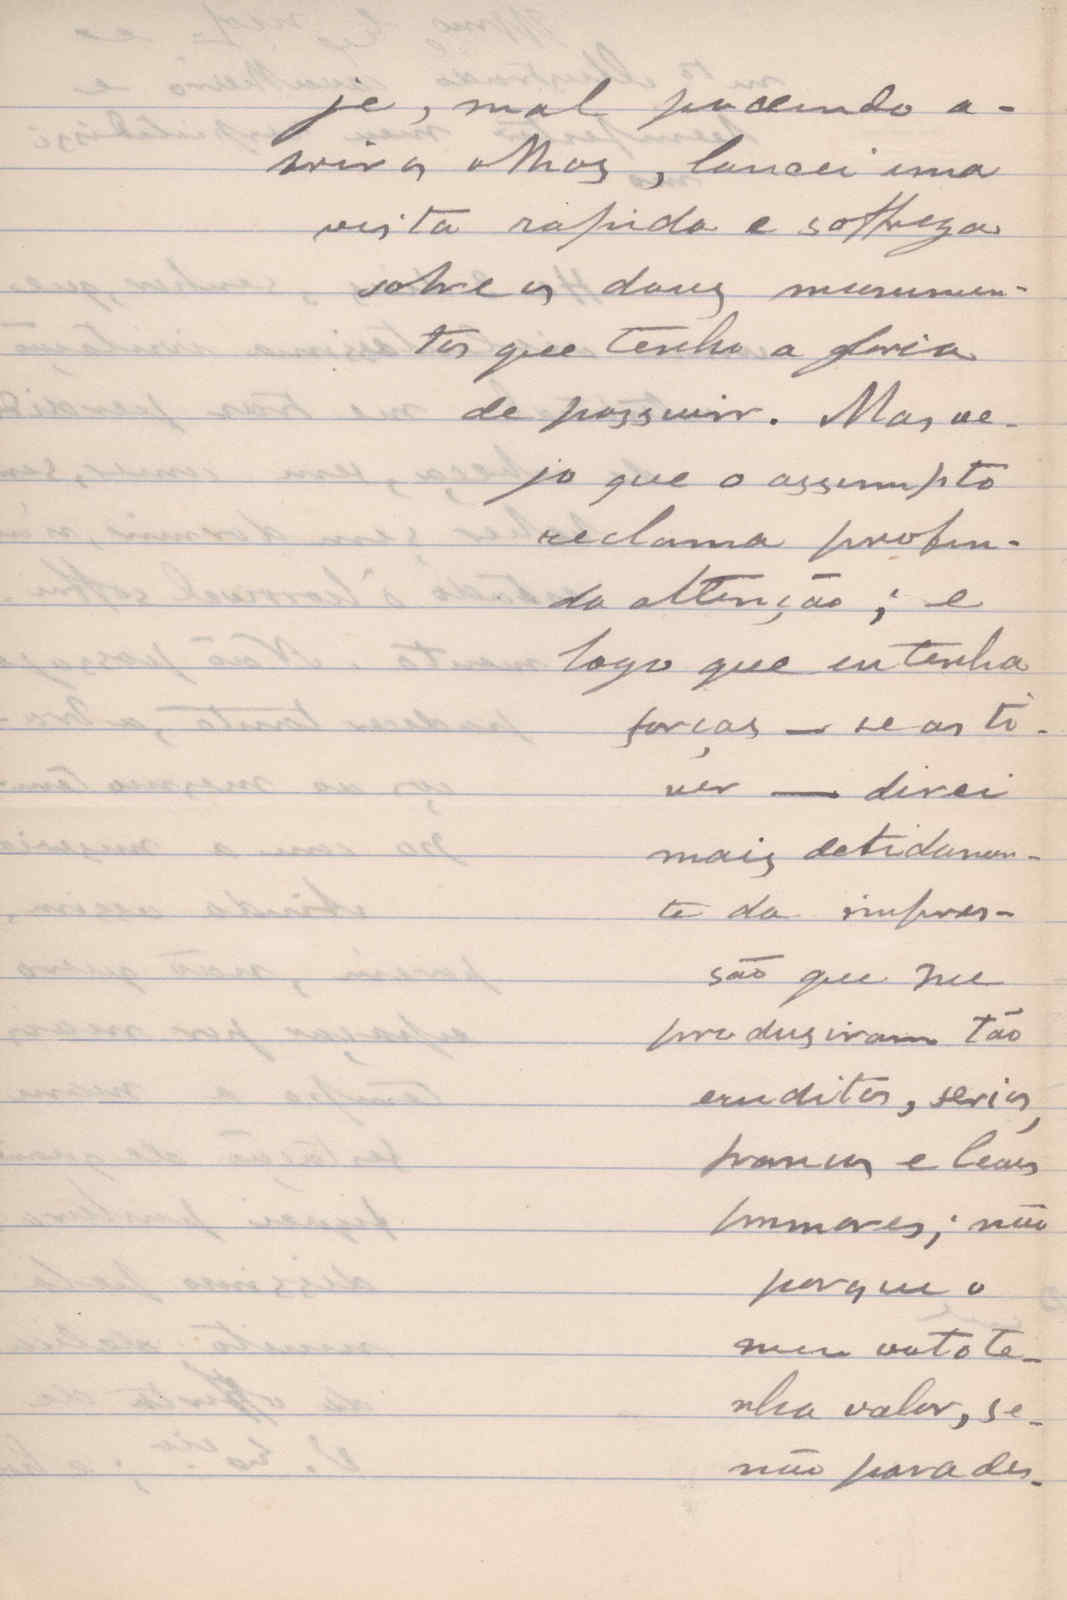 je, mal podendo a-
brir os olhos, lancei uma
vista rapida e soffrega
sobre os dous monumen-
tos que tenho a gloria
de possuir. Mas ve-
jo que o assumpto
reclama profun-
da attenção; e
logo que eu tenha
forças — se as ti-
ver — direi
mais detidamen-
te da impres-
são que me
produsiram tão
eruditos, serios,
francos e leaes
primores; não
porque o
meu voto te-
nha valor, se-
não para des-